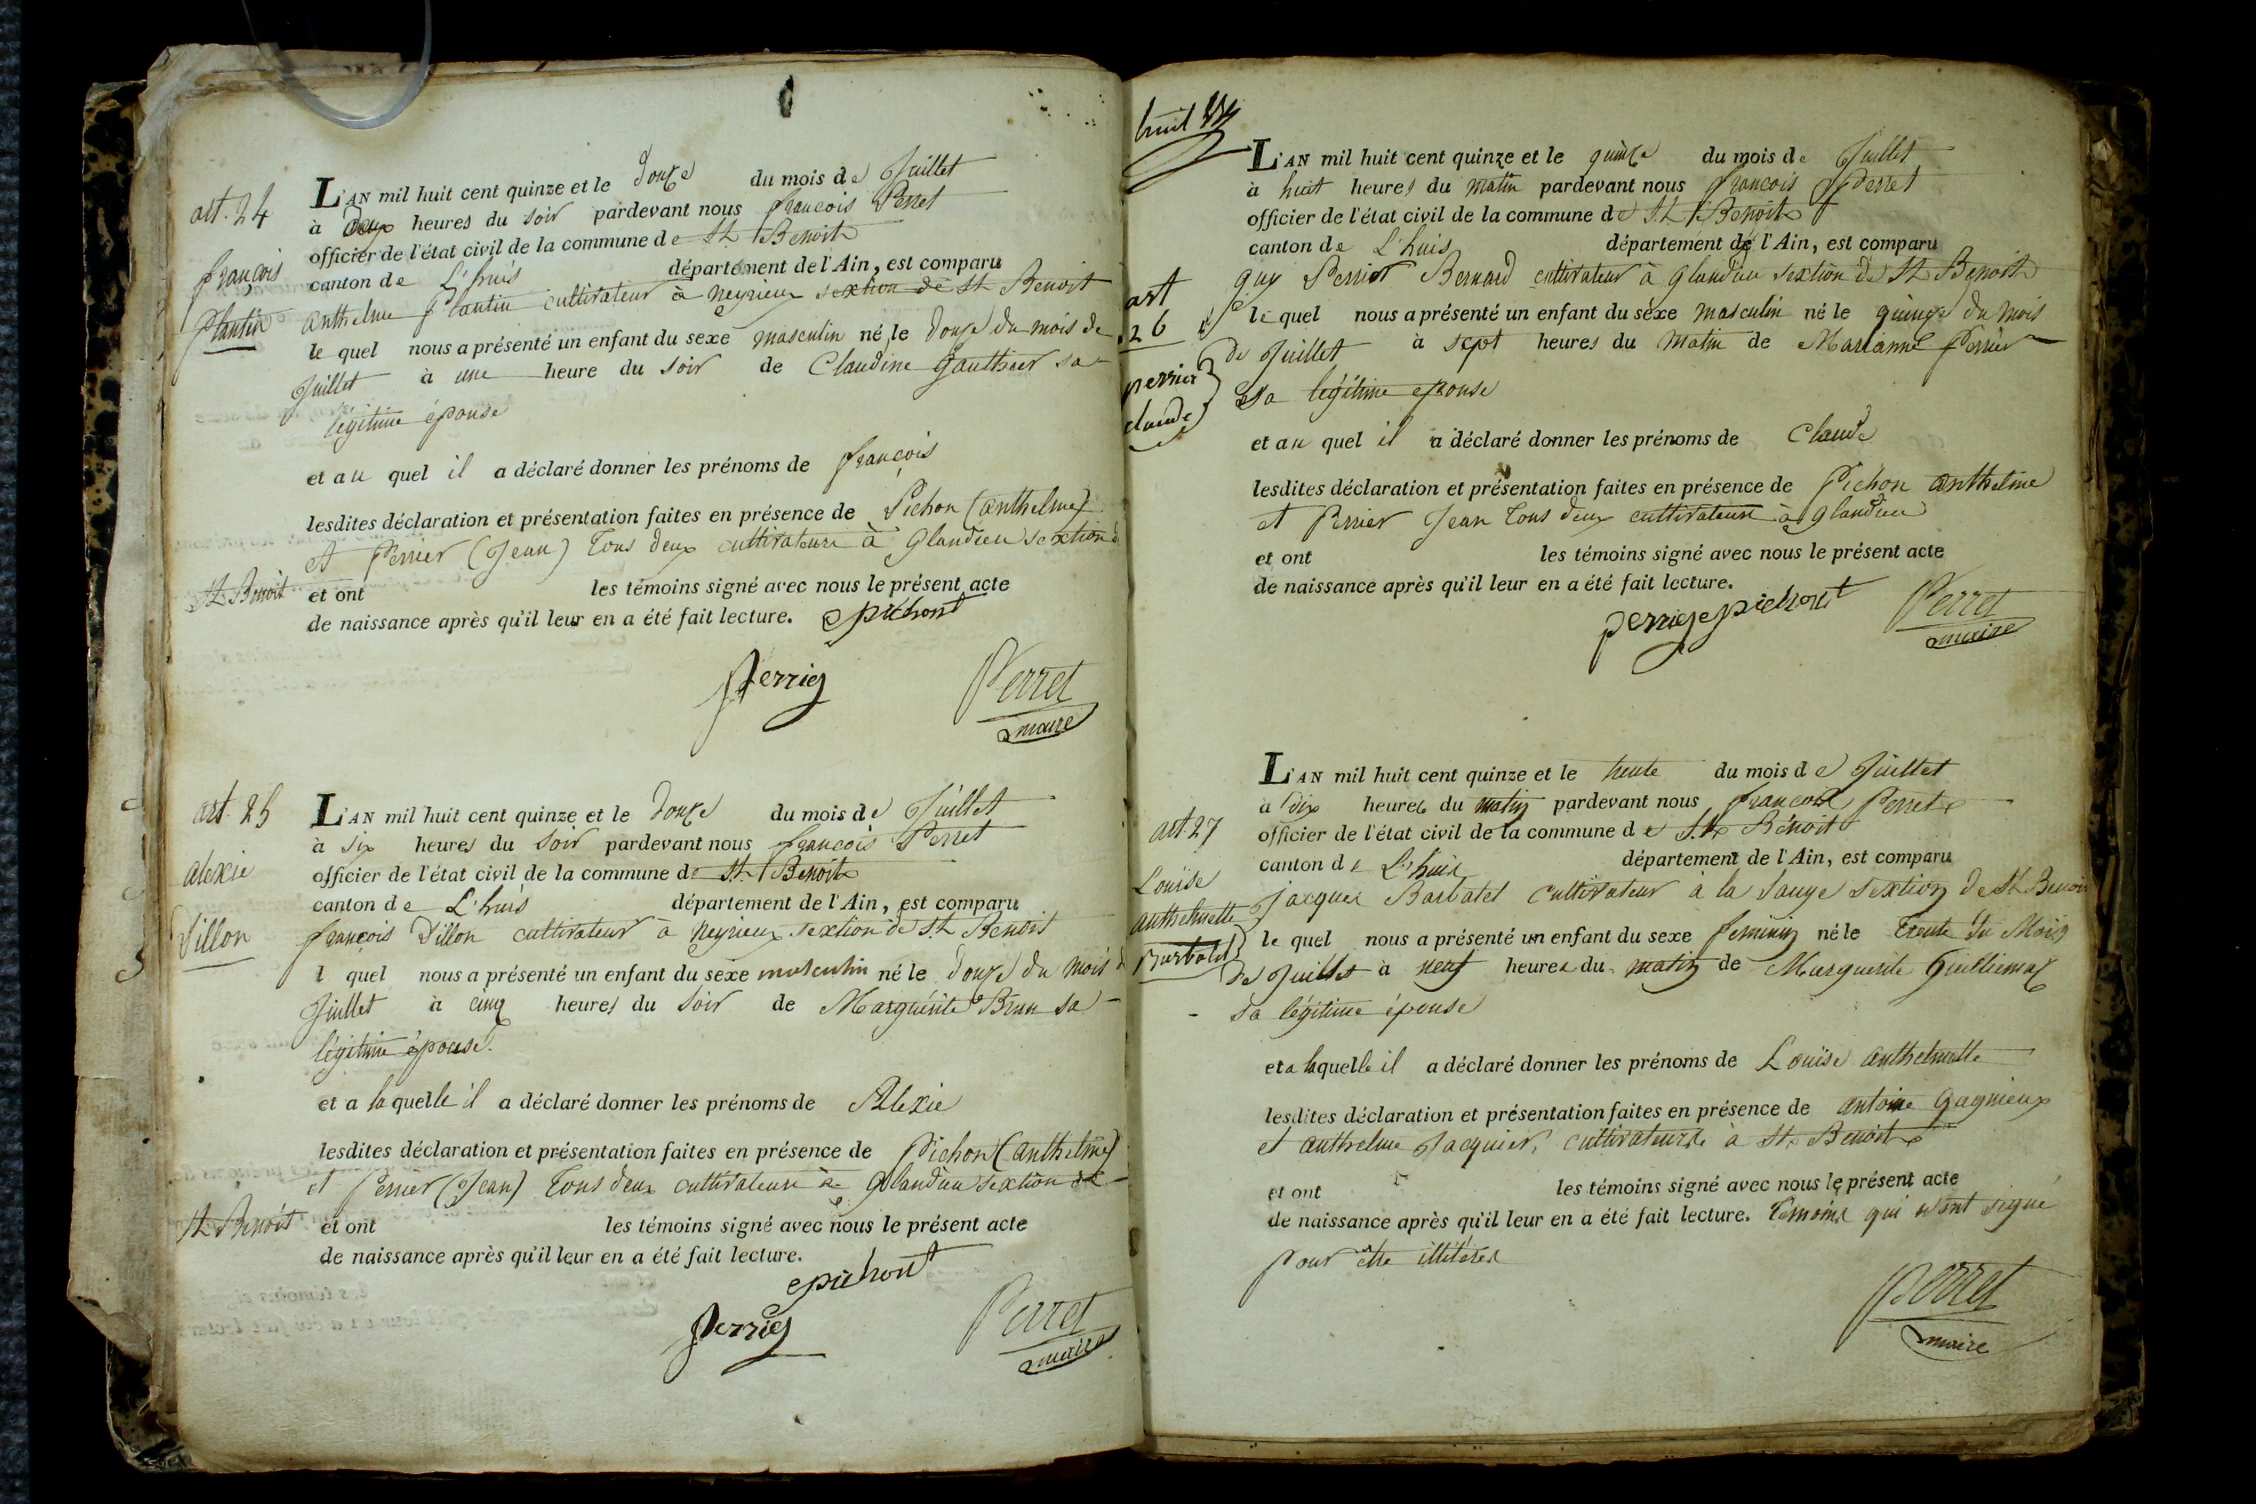 art. 24
françois
plantin
L'AN mil huit cent quinze et le douze du mois de Juillet
à deux heures du soir pardevant nous françois Perret
officier de l'état civil de la commune de St Benoit
canton de L'huis département de l'Ain, est comparu
anthelme plantin cultivateur à neyrieux sextion de St Benoit
le quel nous a présenté un enfant du sexe masculin né le douze du mois de
Juillet à une heure du soir de Claudine Gauthier sa
légitime épouse
et au quel il a déclaré donner les prénoms de françois
lesdites déclaration et présentation faites en présence de Pichon (anthelme)
et Perrier (Jean) tous deux cultivateurs à glandieu sextion d
St Benoit et ont les témoins signé avec nous le présent acte
de naissance après qu'il leur en a été fait lecture. pichont
perrie
Perret
maire
art. 25
alexie
Dillon
L'AN mil huit cent quinze et le douze du mois de Juillet
à six heures du soir pardevant nous françois Perret
officier de l'état civil de la commune de St Benoit
canton de L'huis département de l'Ain, est comparu
françois Dillon cultivateur à neyrieux sextion de St Benoit
l quel nous a présenté un enfant du sexe masculin né le douze du mois d
Juillet à cinq heures du soir de Marguérite Brun sa
légitime épouse.
et a laquelle il a déclaré donner les prénoms de Alexie
lesdites déclaration et présentation faites en présence de Pichon (anthelme)
et Perrier (Jean) tous deux cultivateurs à Glandieu sextion de
St Benoit et ont les témoins signé avec nous le présent acte
de naissance après qu'il leur en a été fait lecture.
pichont
perrie
Perret
maire
huit
art
26
perrier
claude
L'AN mil huit cent quinze et le quinze du mois de Juillet
à huit heures du matin pardevant nous françois Perret
officier de l'état civil de la commune de St Benoit
canton de L'huis département de l'Ain, est comparu
guy Perrier Bernard cultivateur à glandieu sextion de St Benoit
le quel nous a présenté un enfant du sexe masculin né le quinze du mois
de Juillet à sept heures du matin de Marianne perrier
sa légitime epouse
et au quel il a déclaré donner les prénoms de Claude
lesdites déclaration et présentation faites en présence de Pichon anthelme
et Perrier Jean tous deux cultivateurs à glandieu
et ont les témoins signé avec nous le présent acte
de naissance après qu'il leur en a été fait lecture.
perrie pichont
Perret
maire
art. 27
Louise
anthelmette
Barbatet
L'AN mil huit cent quinze et le trente du mois de Juillet
à dix heures du matin pardevant nous françois Perret
officier de l'état civil de la commune de St Bénoit
canton de L'huis département de l'Ain, est comparu
Jacques Barbatet cultivateur à la Sauge sextion de St Benoit
le quel nous a présenté un enfant du sexe feminin né le trente du Mois
de Juillet à neuf heures du matin de Marguerite Guillermaz
sa légitime épouse
et a laquelle il a déclaré donner les prénoms de Louïse anthelmette
lesdites déclaration et présentation faites en présence de antoine gagnieux
et anthelme Jacquier, cultivateurs à St Benoit
et ont les témoins signé avec nous le présent acte
de naissance après qu'il leur en a été fait lecture. témoins qui n'ont signé
pour être illitérés
Perret
maire